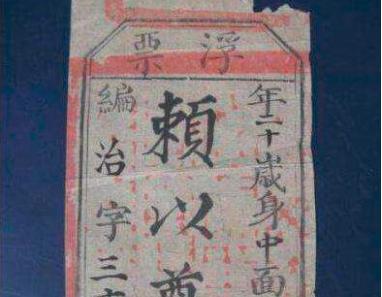 浮票
年二十歲身中面
頼以尊
編治字三